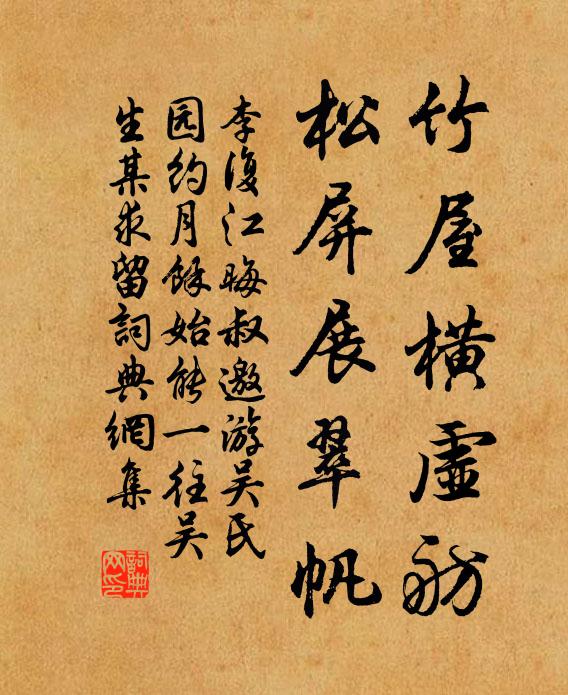 竹屋橫虛舫
松屏展翠帆
李復江晦叔邀游吴氏
园約月餘始能一往吴
生某求留詞典網集
詞典网印